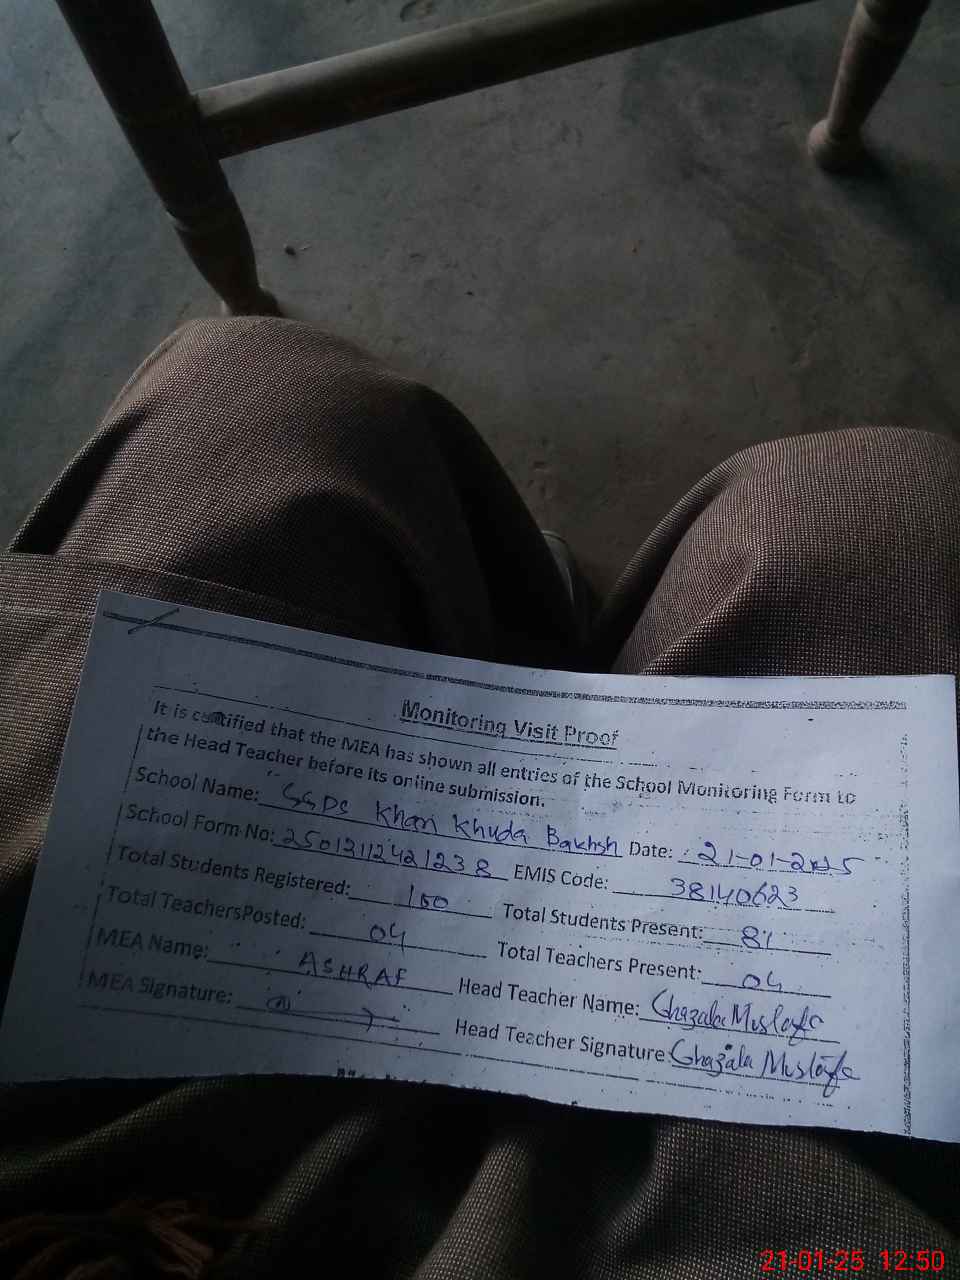 Monitoring Visit Proof
It is certified that the MEA has shown all entries of the School Monitoring Form to
the Head Teacher before its online submission.
School Name: SSDS Khan Khuda Bakhsh Date: 21-01-2025
School Form No: 25012112421238 EMIS Code: 38140623
Total Students Registered: 100 Total Students Present: 81
Total TeachersPosted: 04 Total Teachers Present: 04
MEA Name: ASHRAF Head Teacher Name: Ghazala Mustafa
MEA Signature: Head Teacher Signature: Ghazala Mustafa
21-01-25 12:50